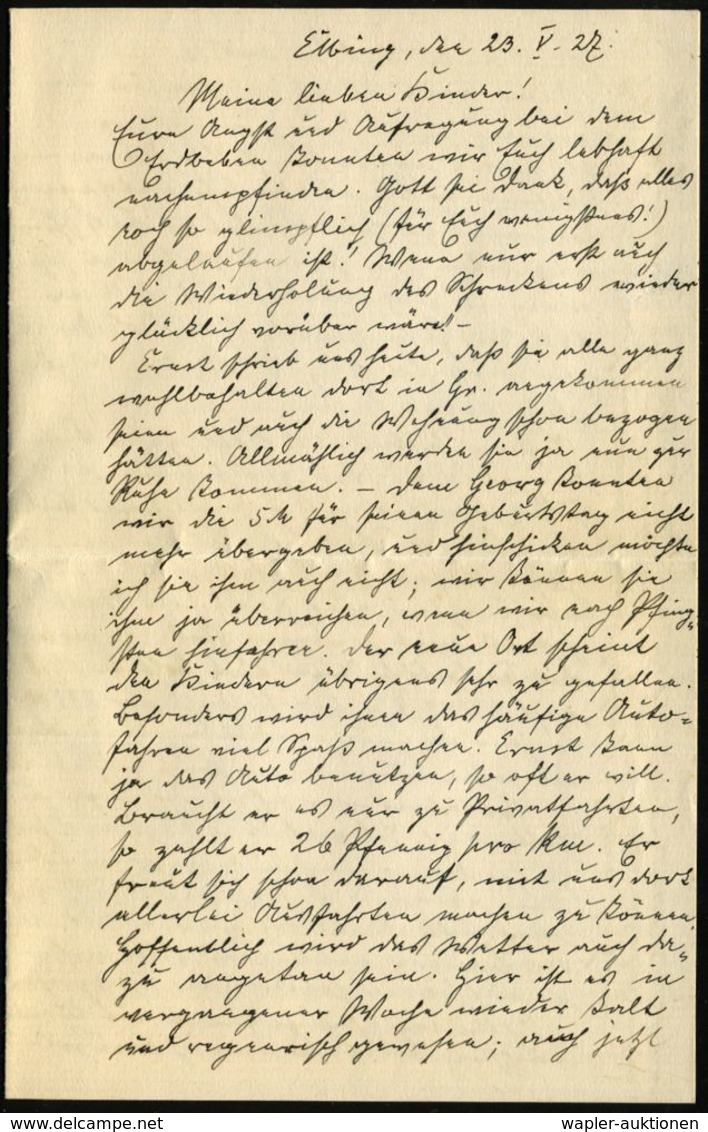 Elbing, den 23. V. 27.
Meine lieben Kinder!
Eure Angst und Aufregung bei dem
Erdbeben konnten wir Euch lebhaft
nachempfinden. Gott sei Dank, daß alles
noch so glimpflich (für Euch wenigstens!)
abgelaufen ist! Wenn nur erst auch
die Wiederholung des Schreckens wieder
glücklich vorüber wäre! –
Ernst schrieb uns heute, daß sie alle ganz
wohlbehalten dort in Gr. angekommen
seien und auch die Wohnung schon bezogen
hätten. Allmählich werden sie ja nun zur
Ruhe kommen. – Dem Georg konnten
wir die 5 M für seinen Geburtstag nicht
mehr übergeben, und hinschicken möchte
ich sie ihm auch nicht; wir können sie
ihm ja überreichen, wenn wir nach Pfing-
sten hinfahren. Der neue Ort scheint
den Kindern übrigens sehr zu gefallen.
Besonders wird ihnen das häufige Auto-
fahren viel Spaß machen. Ernst kann
ja das Auto benutzen, so oft er will.
Braucht er es nur zu Privatfahrten,
so zahlt er 26 Pfennig pro km. Er
freut sich schon darauf, mit uns dort
allerlei Ausfahrten machen zu können.
Hoffentlich wird das Wetter auch da-
zu angetan sein. Hier ist es in
vergangener Woche wieder kalt
und regnerisch gewesen; auch jetzt
wapler-auktionen